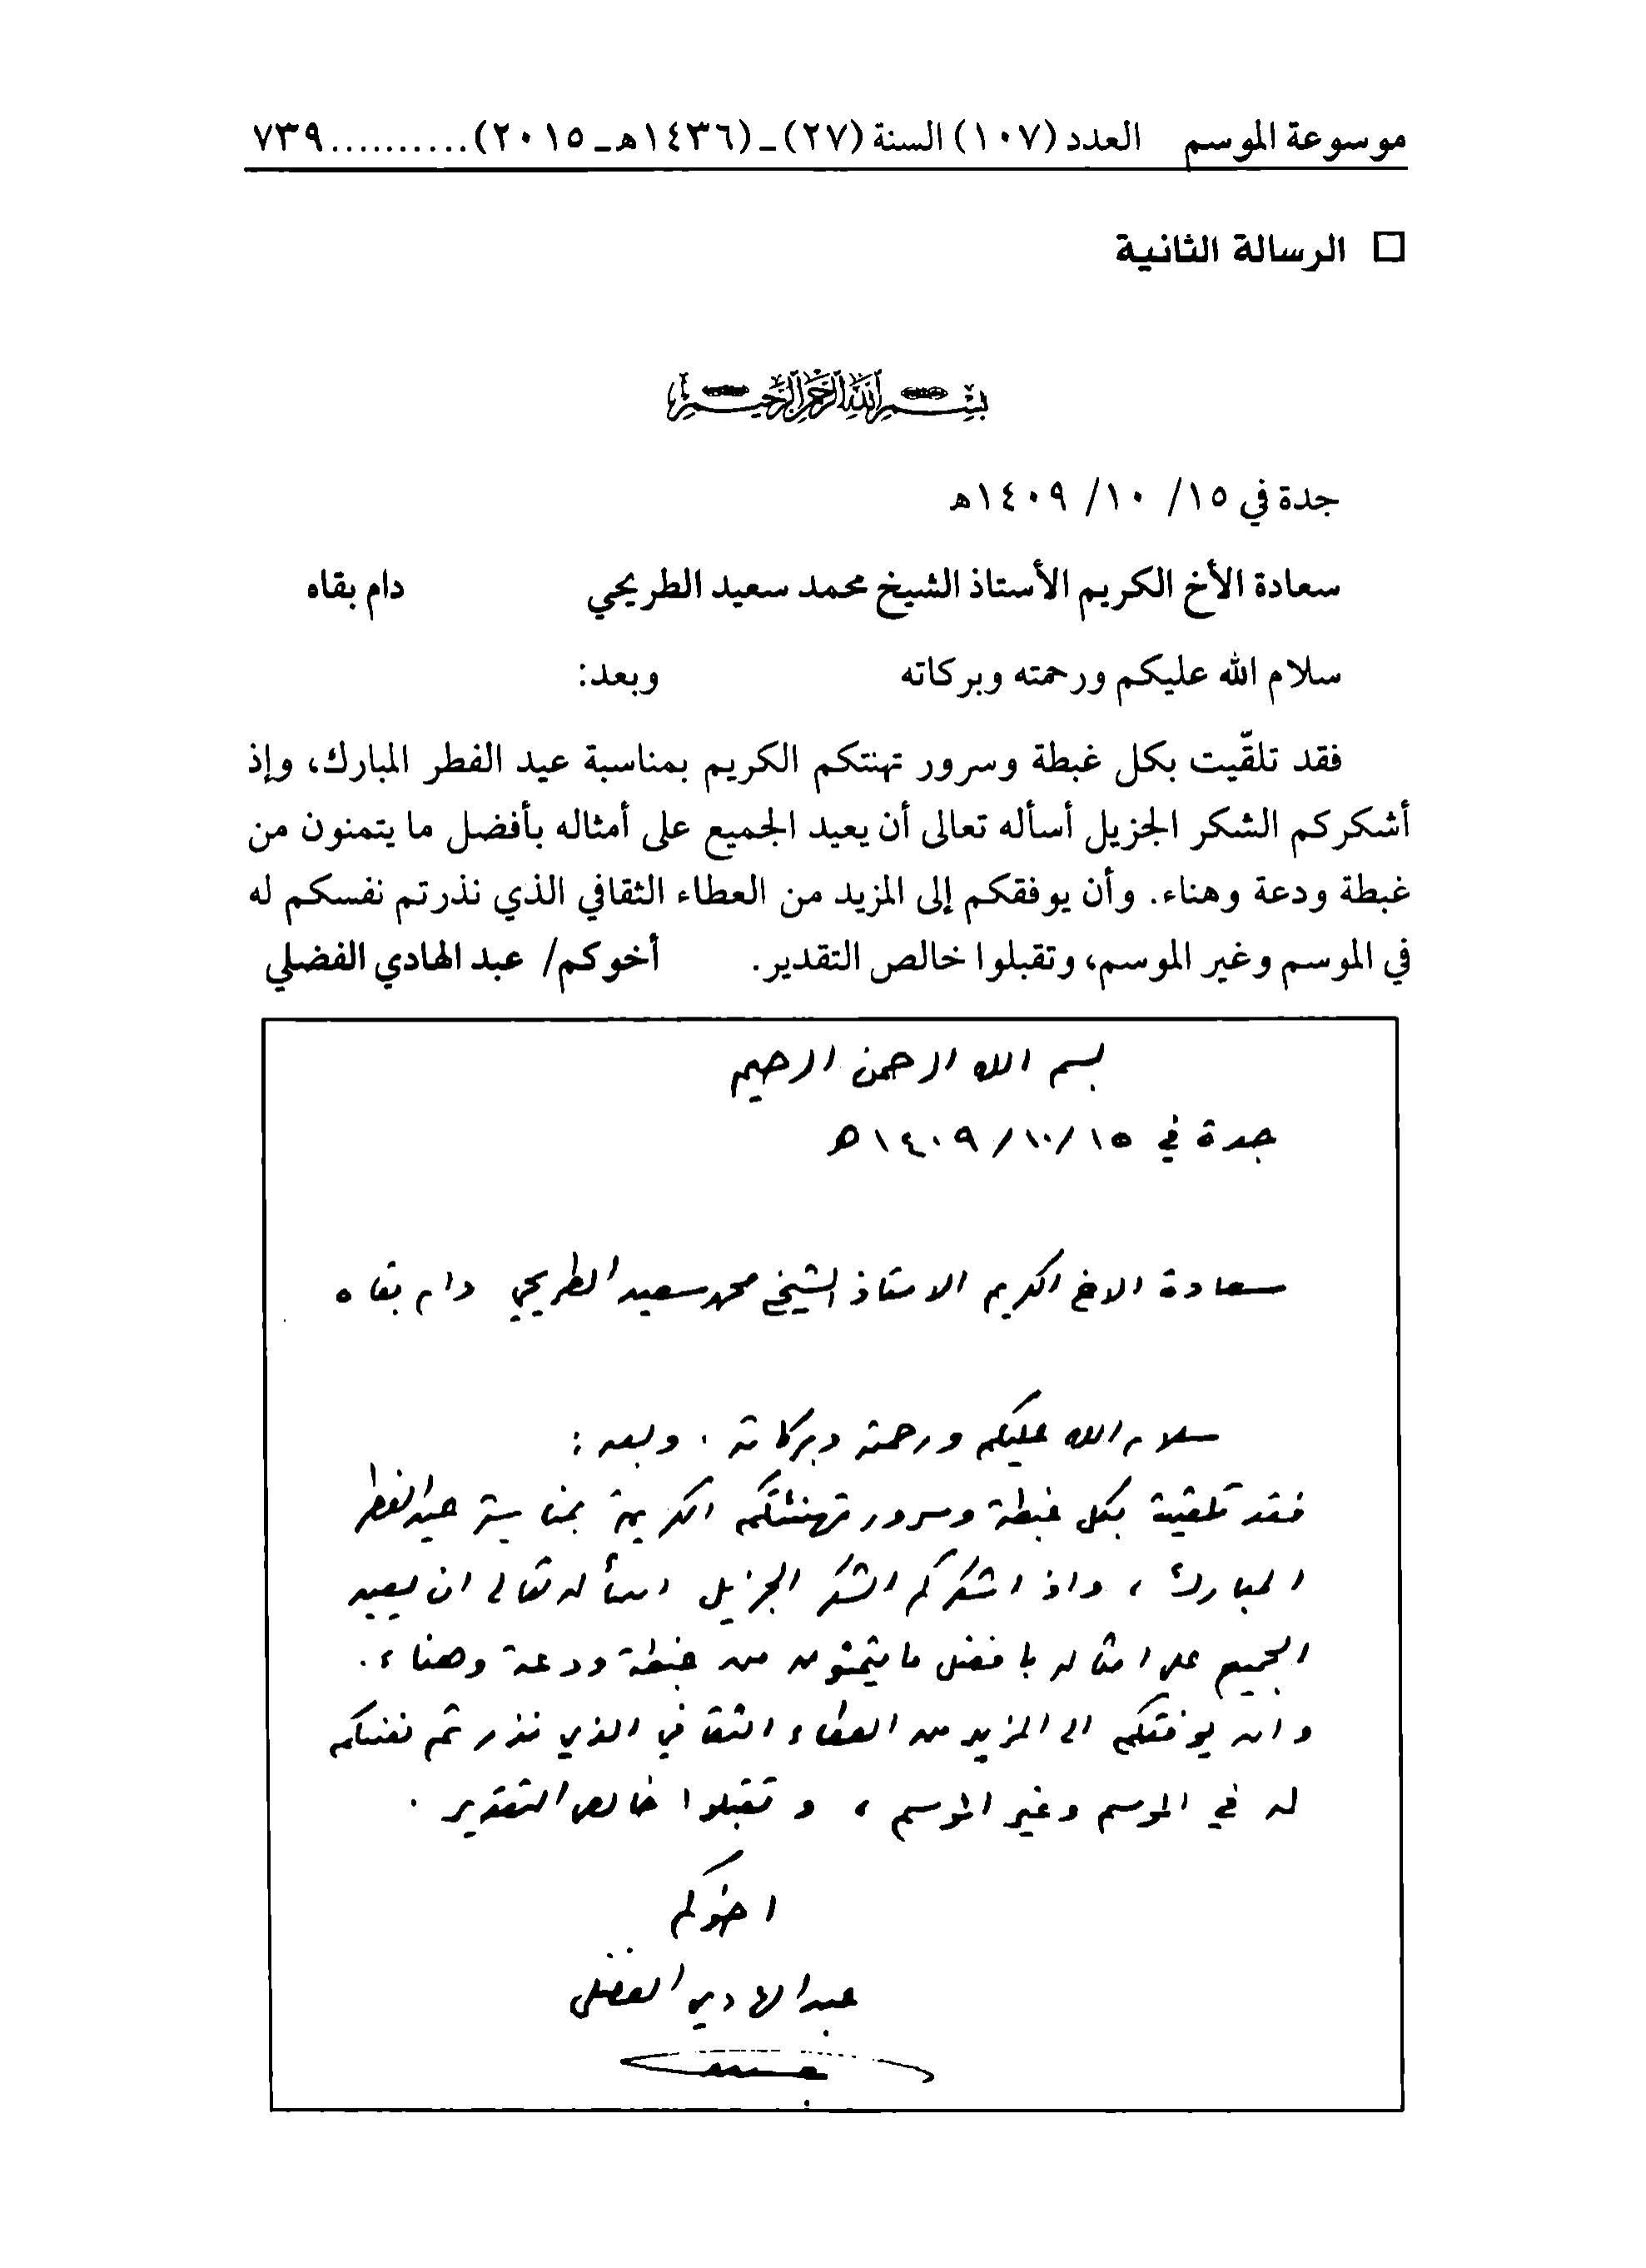 موسوعة الموسم العدد (١٠٧) السنة (٢٧) ـ (١٤٣٦هـ ـ ٢٠١٥) .......... ٧٣٩
□ الرسالة الثانية
بسم الله الرحمن الرحيم
جدة في ١٥/ ١٠/ ١٤٠٩هـ
سعادة الأخ الكريم الأستاذ الشيخ محمد سعيد الطريحي دام بقاه
سلام الله عليكم ورحمته وبركاته وبعد:
فقد تلقّيت بكل غبطة وسرور تهنتكم الكريم بمناسبة عيد الفطر المبارك، وإذ
أشكركم الشكر الجزيل أسأله تعالى أن يعيد الجميع على أمثاله بأفضل ما يتمنون من
غبطة ودعة وهناء. وأن يوفقكم إلى المزيد من العطاء الثقافي الذي نذرتم نفسكم له
في الموسم وغير الموسم، وتقبلوا خالص التقدير. أخوكم/ عبد الهادي الفضلي
بسم الله الرحمن الرحيم
جدة في ١٥/١٠/١٤٠٩هـ
سعادة الاخ الكريم الاستاذ الشيخ محمد سعيد الطريحي دام بقاه
سلام الله عليكم ورحمته وبركاته . وبعد :
فقد تلقيت بكل غبطة وسرور تهنئتكم الكريمة بمناسبة عيد الفطر
المبارك ، واذ اشكركم الشكر الجزيل اسأله تعالى ان يعيد
الجميع على امثاله بافضل ما يتمنون من غبطة ودعة وهناء .
وان يوفقكم الى المزيد من العطاء الثقافي الذي نذرتم نفسكم
له في الموسم وغير الموسم ، وتقبلوا خالص التقدير .
اخوكم
عبد الهادي الفضلي